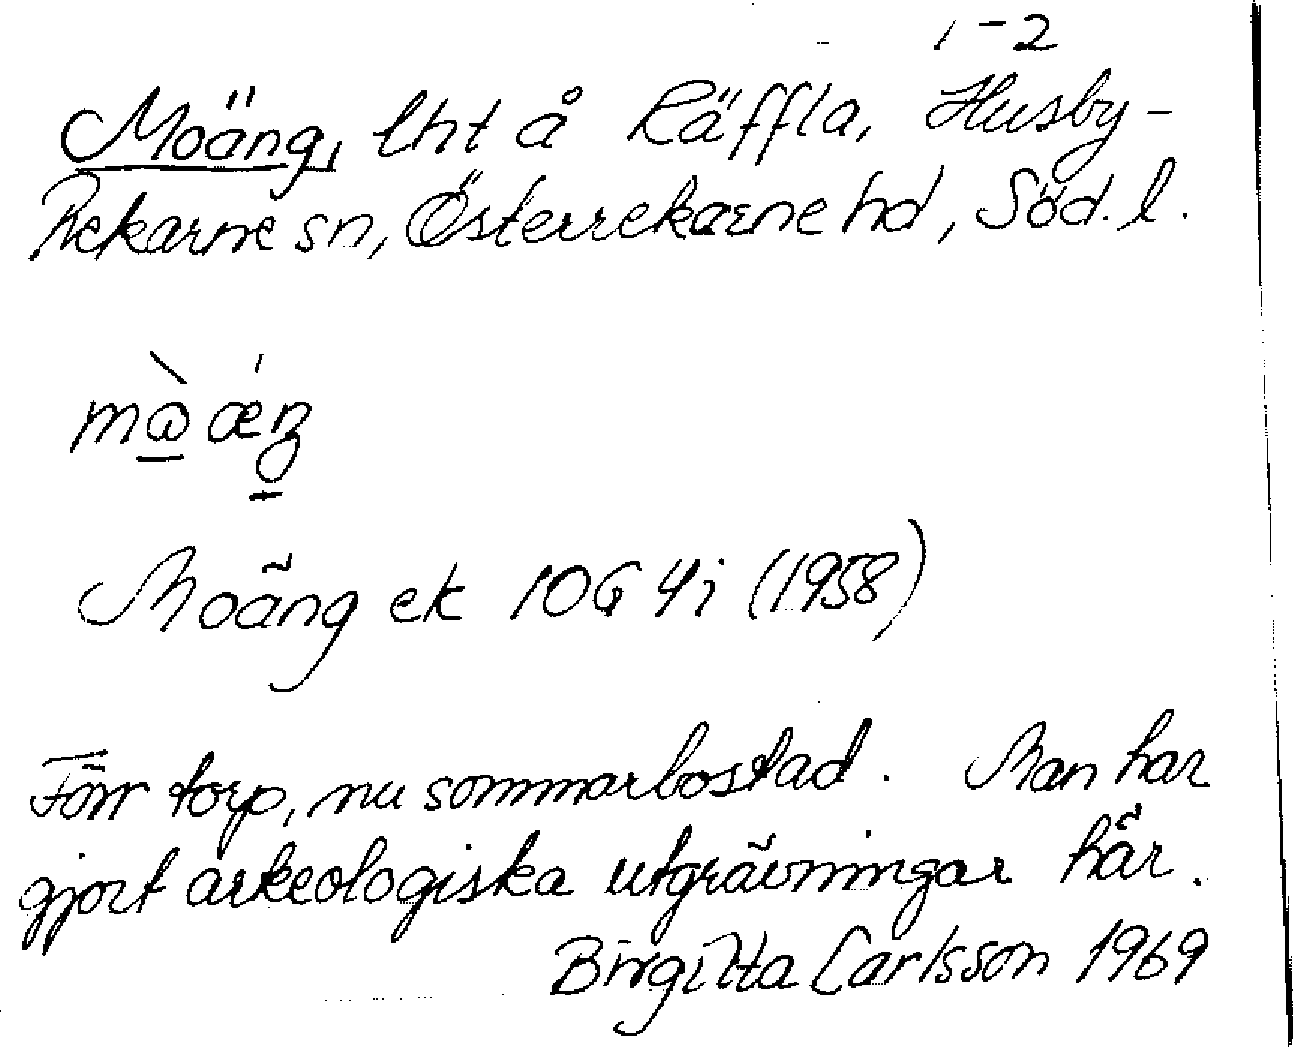 1-2
Moäng, lht å Räffla, Husby-
Rekarne sn, Österrekarne hd, Söd. l.
mὼ ǽŋ
Moäng ek 10G 4i (1958)
Förr torp, nu sommarbostad. Man har
gjort arkeologiska utgrävningar här.
Birgitta Carlsson 1969